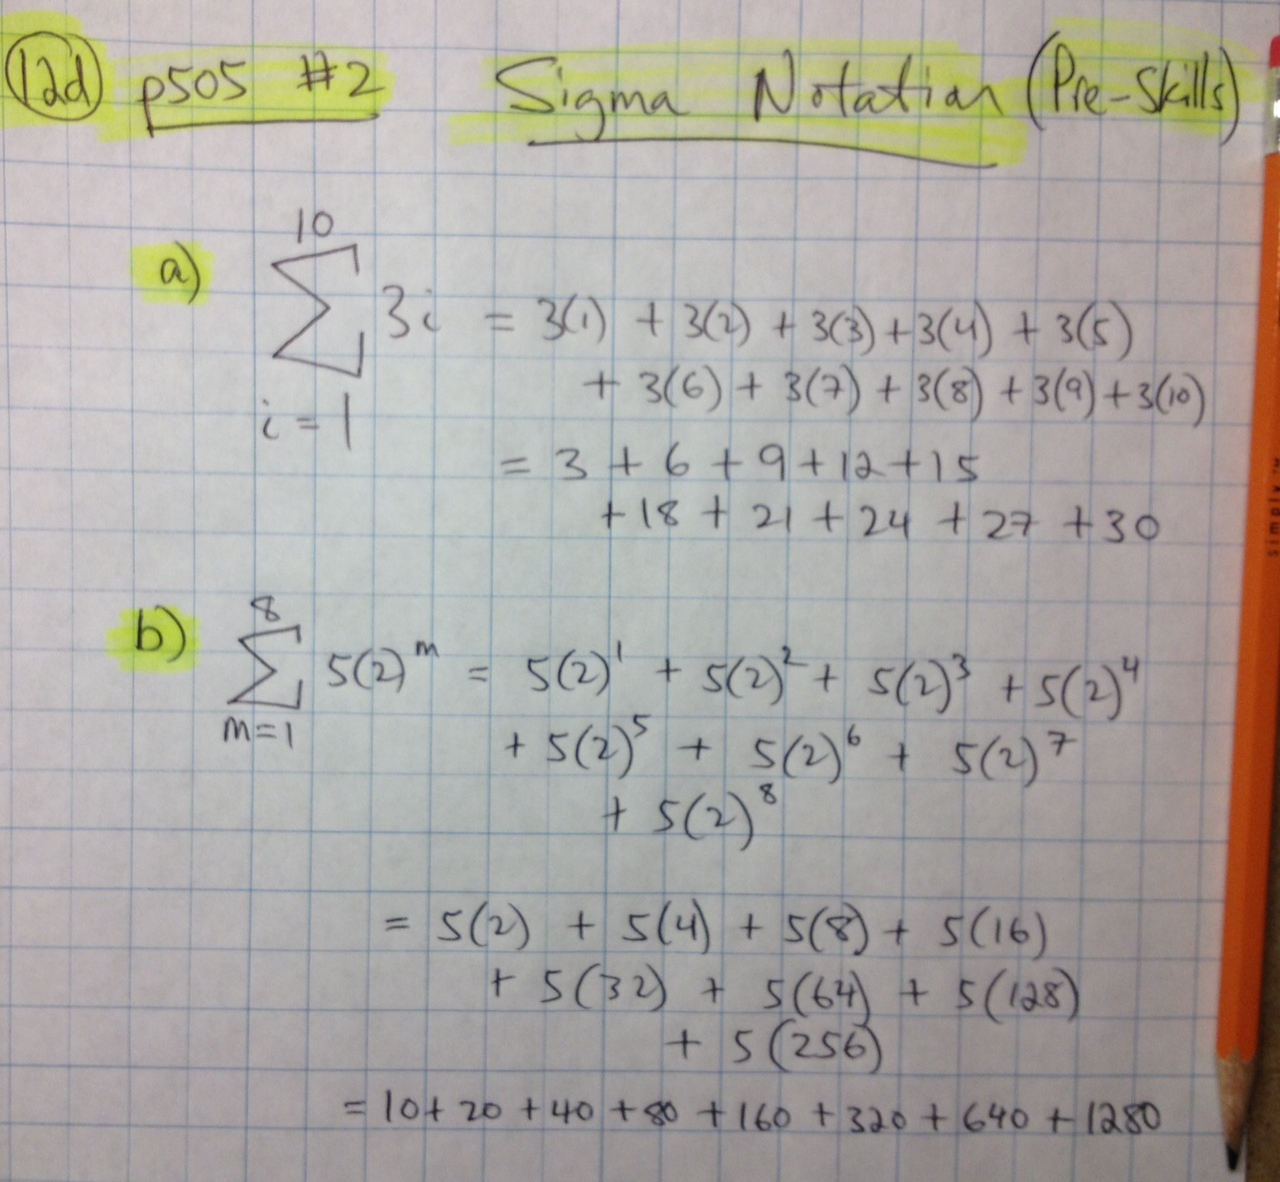 12d p505 #2 Sigma Notation (Pre-Skills)
10
a) ∑ 3i = 3(1) + 3(2) + 3(3) + 3(4) + 3(5)
+ 3(6) + 3(7) + 3(8) + 3(9) + 3(10)
i = 1
= 3 + 6 + 9 + 12 + 15
+ 18 + 21 + 24 + 27 + 30
8
b) ∑ 5(2)^m = 5(2)^1 + 5(2)^2 + 5(2)^3 + 5(2)^4
m=1
+ 5(2)^5 + 5(2)^6 + 5(2)^7
+ 5(2)^8
= 5(2) + 5(4) + 5(8) + 5(16)
+ 5(32) + 5(64) + 5(128)
+ 5(256)
= 10 + 20 + 40 + 80 + 160 + 320 + 640 + 1280